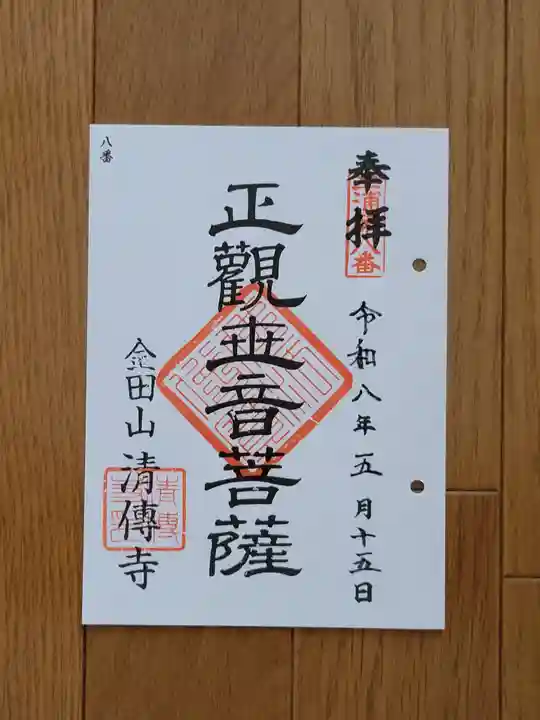 奉拝
令和八年五月十五日
正觀世音菩薩
金田山清傳寺
八番